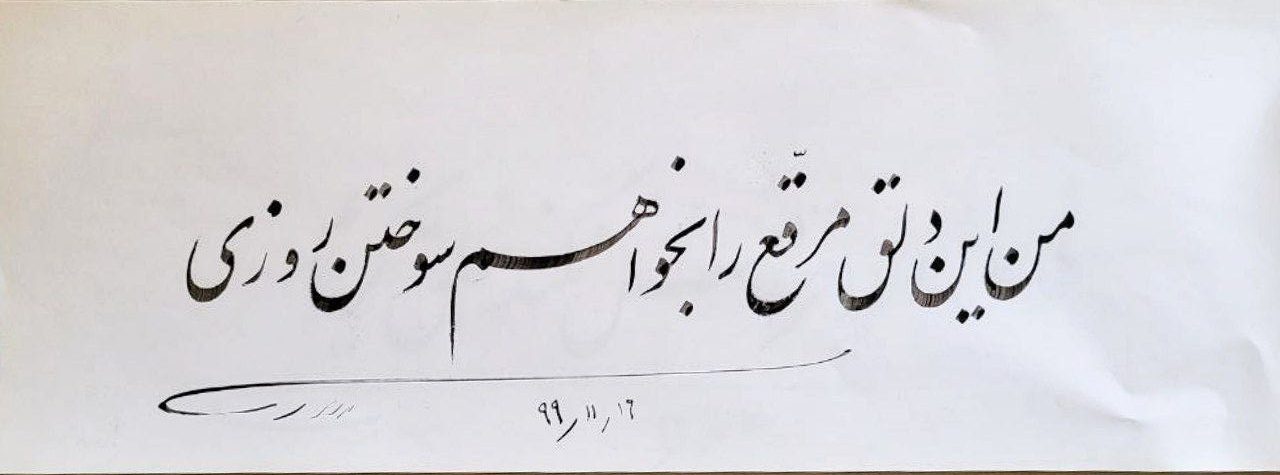 من این دلق مرقّع را بخواهم سوختن روزی
۹۹٫۱۱٫۱۶